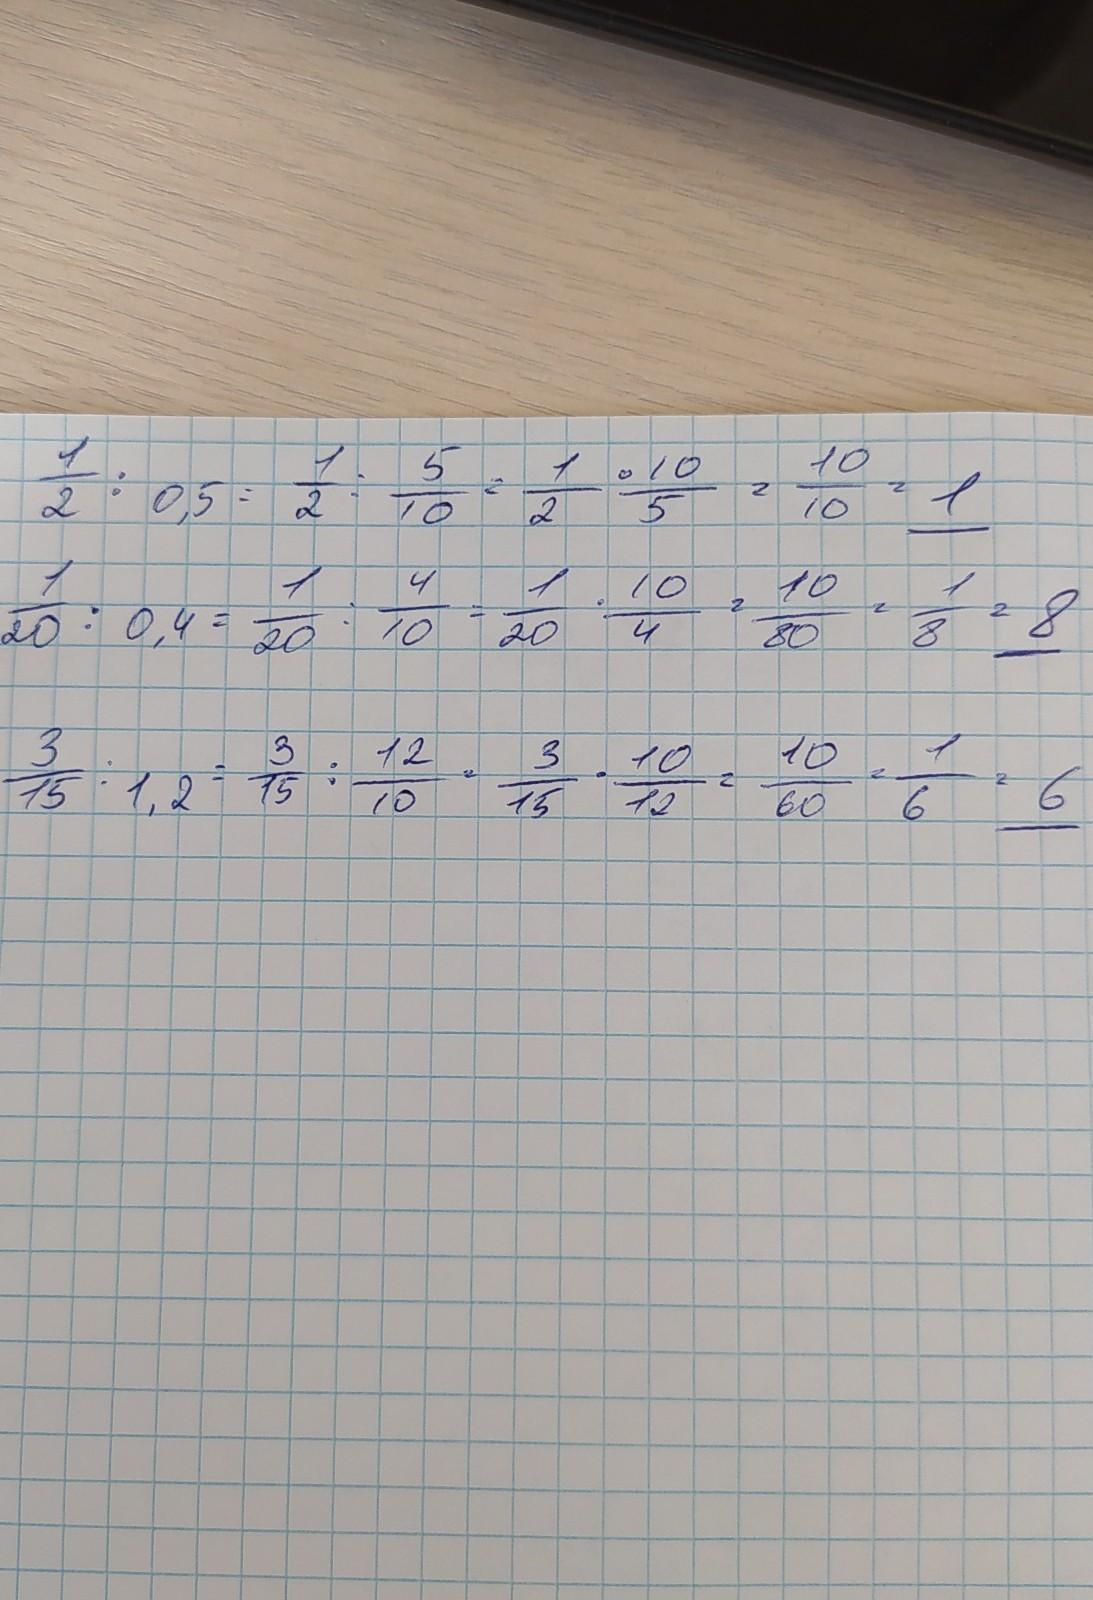 1/2 : 0,5 = 1/2 : 5/10 = 1/2 · 10/5 = 10/10 = 1
1/20 : 0,4 = 1/20 : 4/10 = 1/20 · 10/4 = 10/80 = 1/8 = 8
3/15 : 1,2 = 3/15 : 12/10 = 3/15 · 10/12 = 10/60 = 1/6 = 6